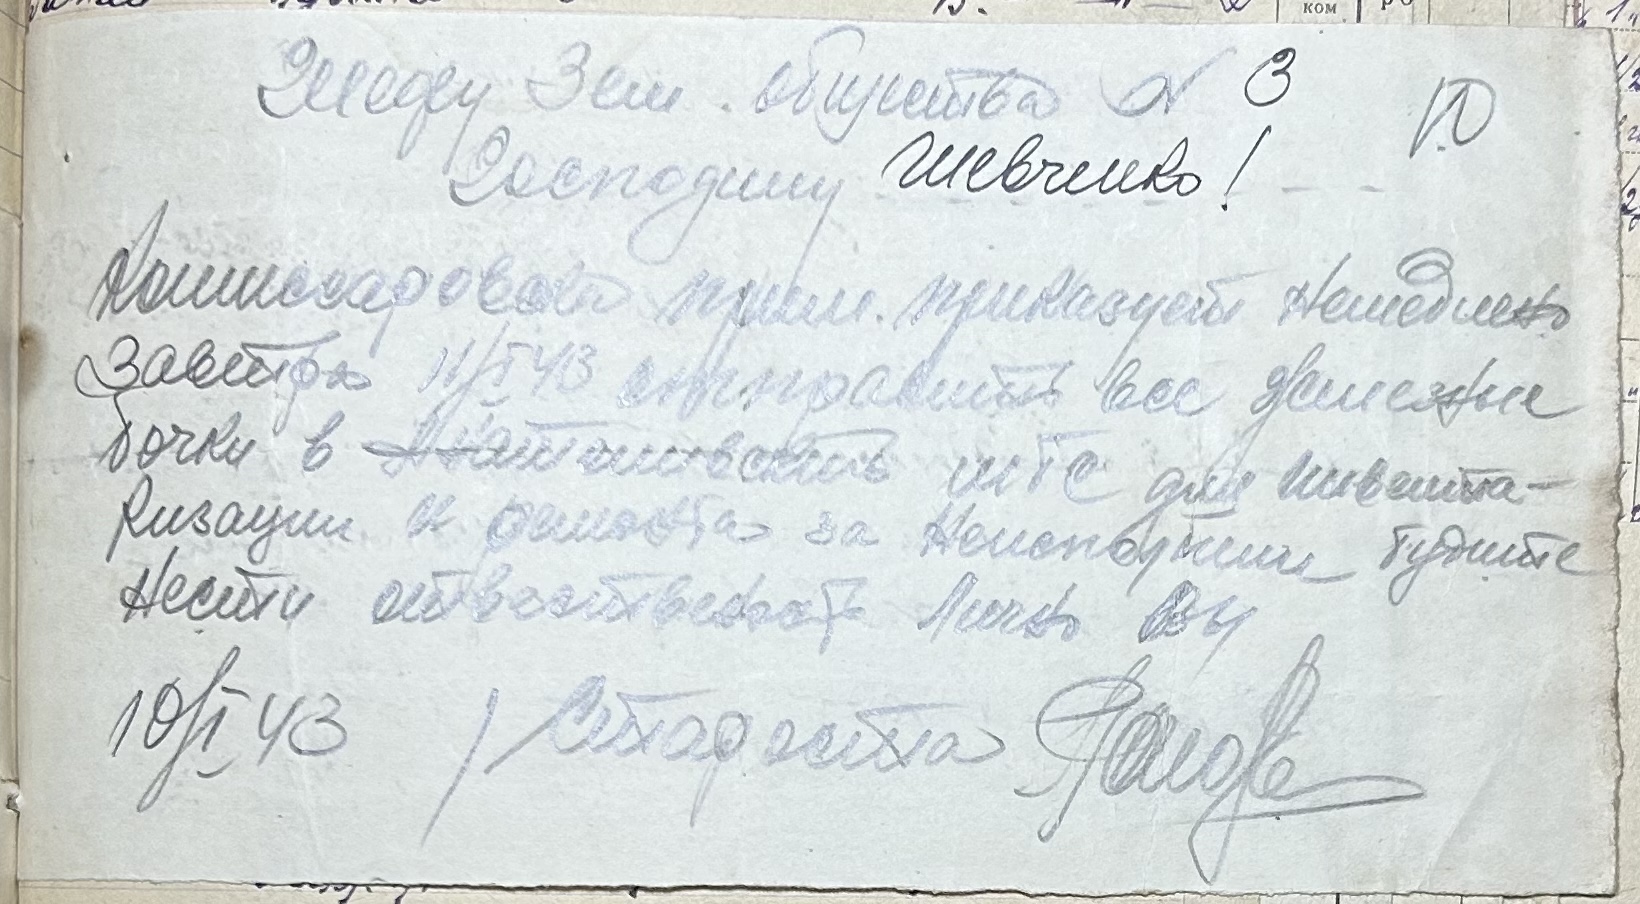 Шефу Зем. общества № 3
Господину Шевченко!
10
Комиссаровская прим. приказует немедлено
завтра 11/I 43 отправить все железные
бочки в МТС для инвента-
ризации и ремонта за неисполнение будите
нести ответственост личко вы
10/I 43 / Староста